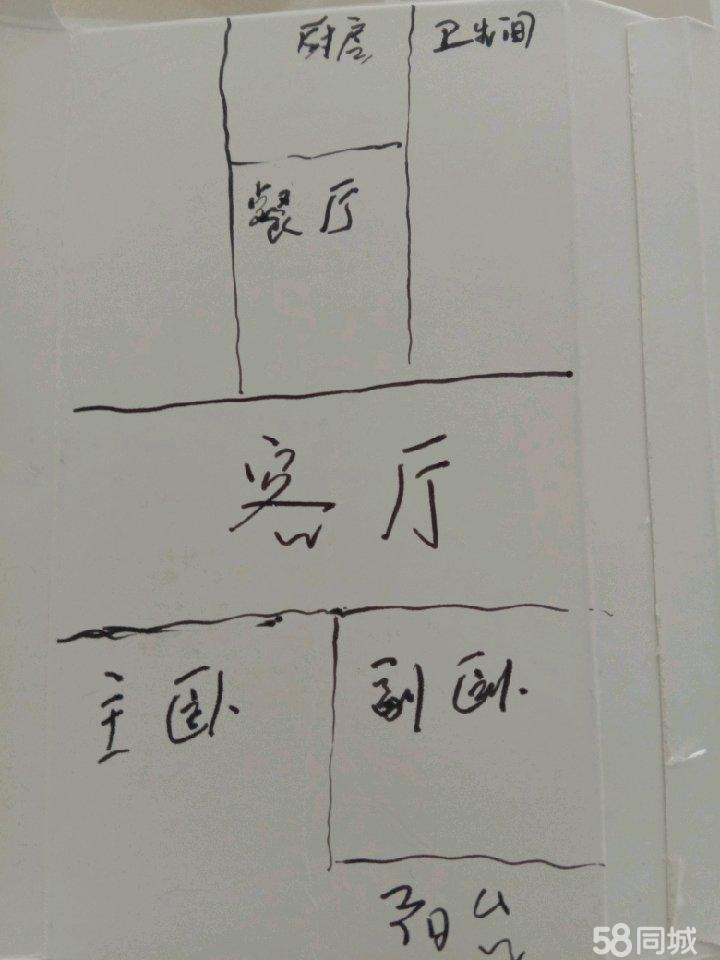 厨房 卫生间
餐厅
客厅
主卧 副卧
阳台
58同城